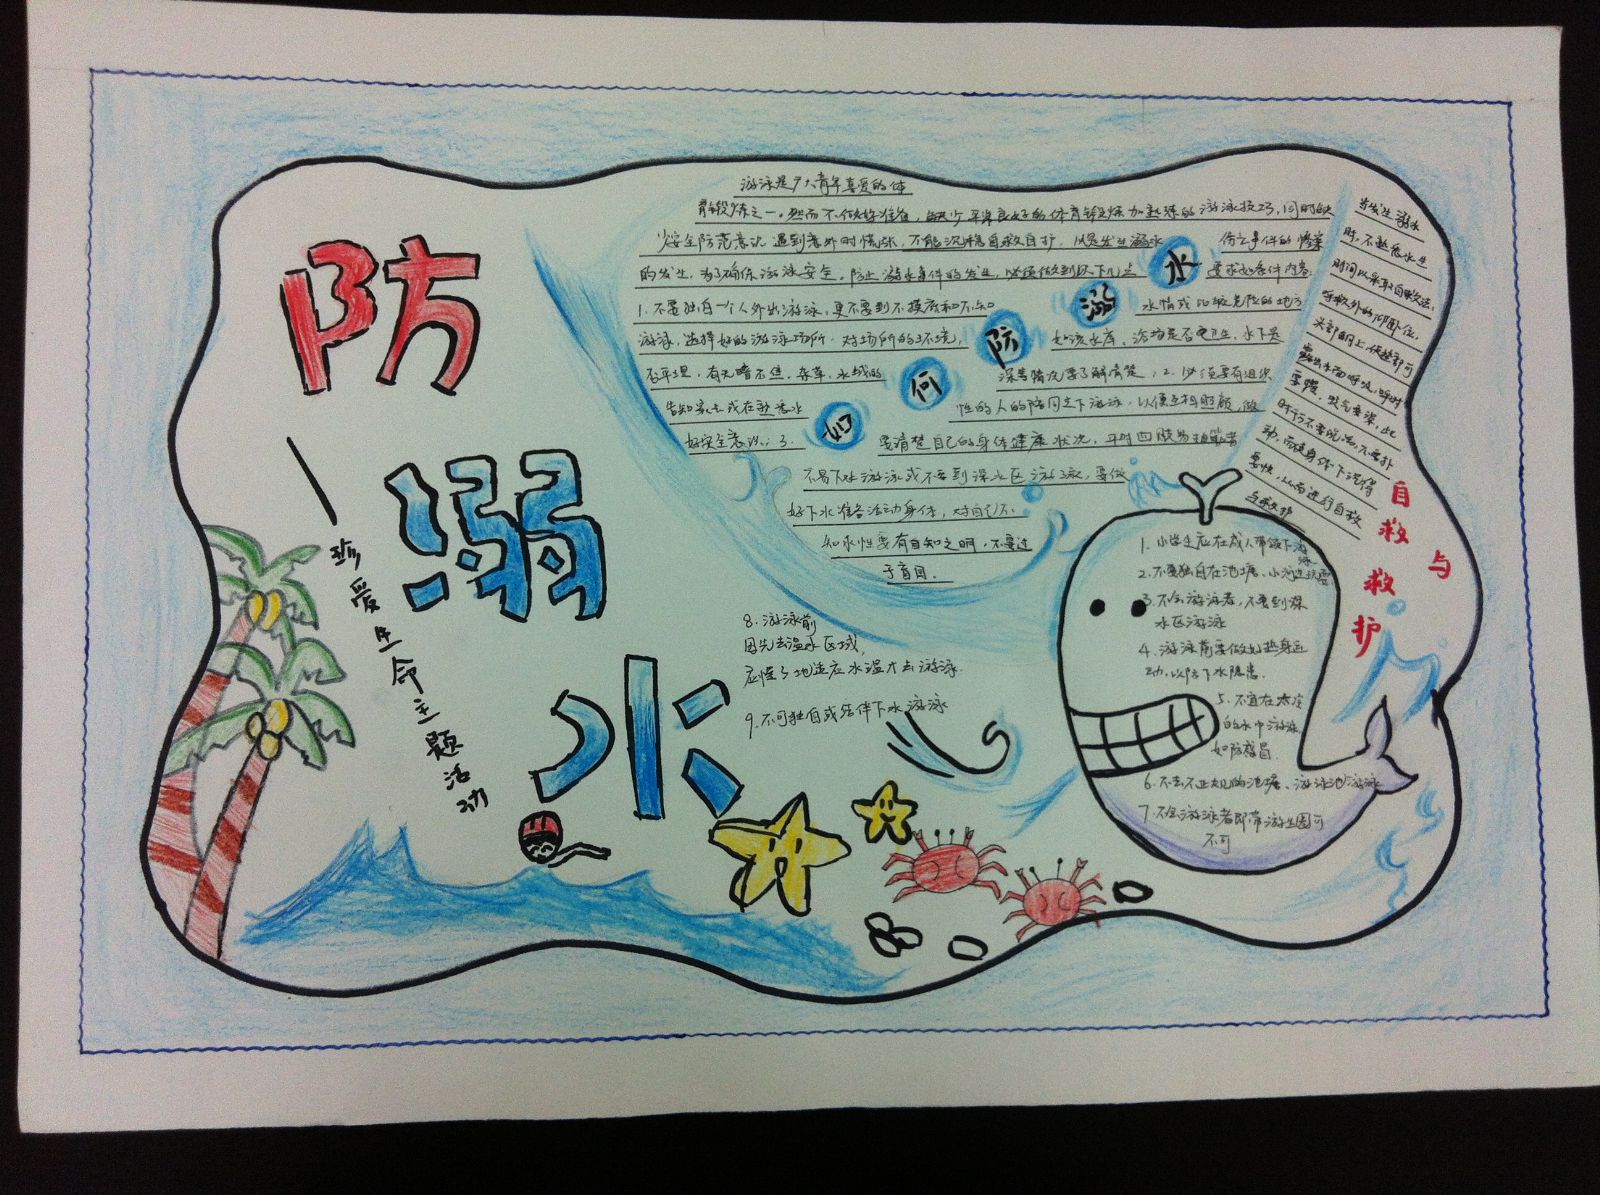 防
溺
水
珍爱生命主题活动
如何防溺水
游泳是广大青年喜爱的体
育锻炼之一。然而不做好准备,缺少平常良好的体育锻炼加熟练的游泳技巧,同时缺
少安全防范意识 遇到意外时慌张,不能沉稳自救自护.
伤亡事件的惨案
的发生.为了确保游泳安全,防止溺水事件的发生,必须做到以下几点
1.不要独自一个人外出游泳,更不要到不摸底和不知
水情或比较危险的地方
游泳,选择好的游泳场所.对场所的环境,
如该水库、浴场是否卫生,水下是
否平坦,有无暗礁、杂草,水域的
深浅情况要了解清楚;2.必须要有组织
性的人的陪同之下游泳,以便互相照顾,做
好安全意识;3.
要清楚自己的身体健康状况,平时四肢易抽筋者
不易下处游泳或不要到深水区游泳,要做
好下水准备活动身体,对自己不
知水性要有自知之明,不要过
于盲目.
自救与救护
当发生溺水
时,不熟悉水性
时可以采取自救法:
头部向上,使鼻部可
露出水面呼吸,呼时
要慢,吸气要深,此
时千万不要慌张,不要扑
动,而使身体下沉得
要快,从而进行自救
与救护
1.小学生应在成人带领下游泳
2.不要独自在池塘、小河边玩耍
3.不会游泳者,不要到深
水区游泳
4.游泳前要做好热身运
动,以防下水隐患.
5.不宜在太凉
的水中游泳
如防感冒.
6.不去不正规的池塘、游泳池游泳
7.不会游泳者即带游生圈可
不可
8.游泳前
因先去温水区域,
应性了地适应水温才去游泳.
9.不可独自或结伴下水游泳